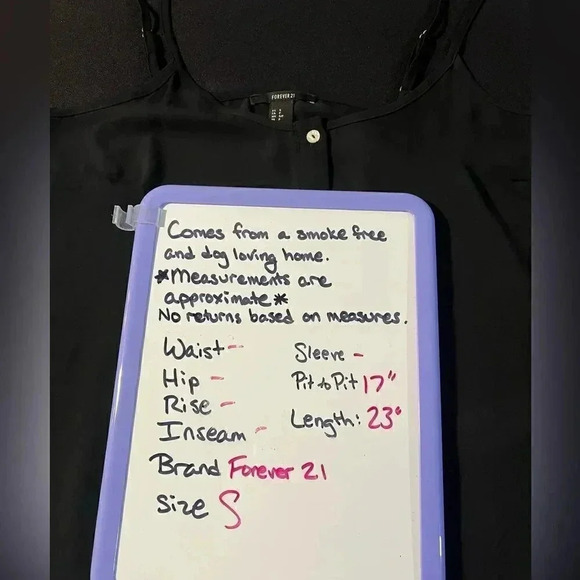 FOREVER 21
Comes from a smoke free
and dog loving home.
*Measurements are
approximate*
No returns based on measures.
Waist -
Hip -
Rise -
Inseam -
Sleeve -
Pit to Pit 17"
Length: 23"
Brand Forever 21
Size S